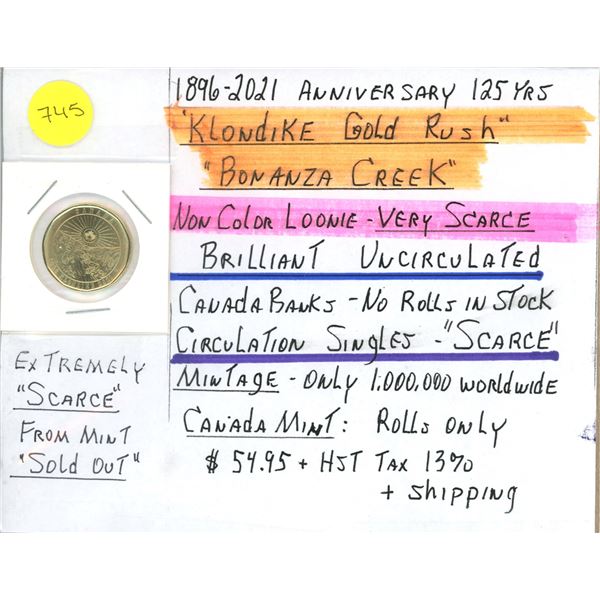 745
1896-2021 ANNIVERSARY 125 YRS
"KLONDIKE GOLD RUSH"
"BONANZA CREEK"
NON COLOR LOONIE - VERY SCARCE
BRILLIANT UNCIRCULATED
CANADA BANKS - NO ROLLS IN STOCK
CIRCULATION SINGLES - "SCARCE"
MINTAGE - ONLY 1,000,000 WORLDWIDE
CANADA MINT: ROLLS ONLY
$ 54.95 + HST TAX 13%
+ SHIPPING
EXTREMELY
"SCARCE"
FROM MINT
"SOLD OUT"